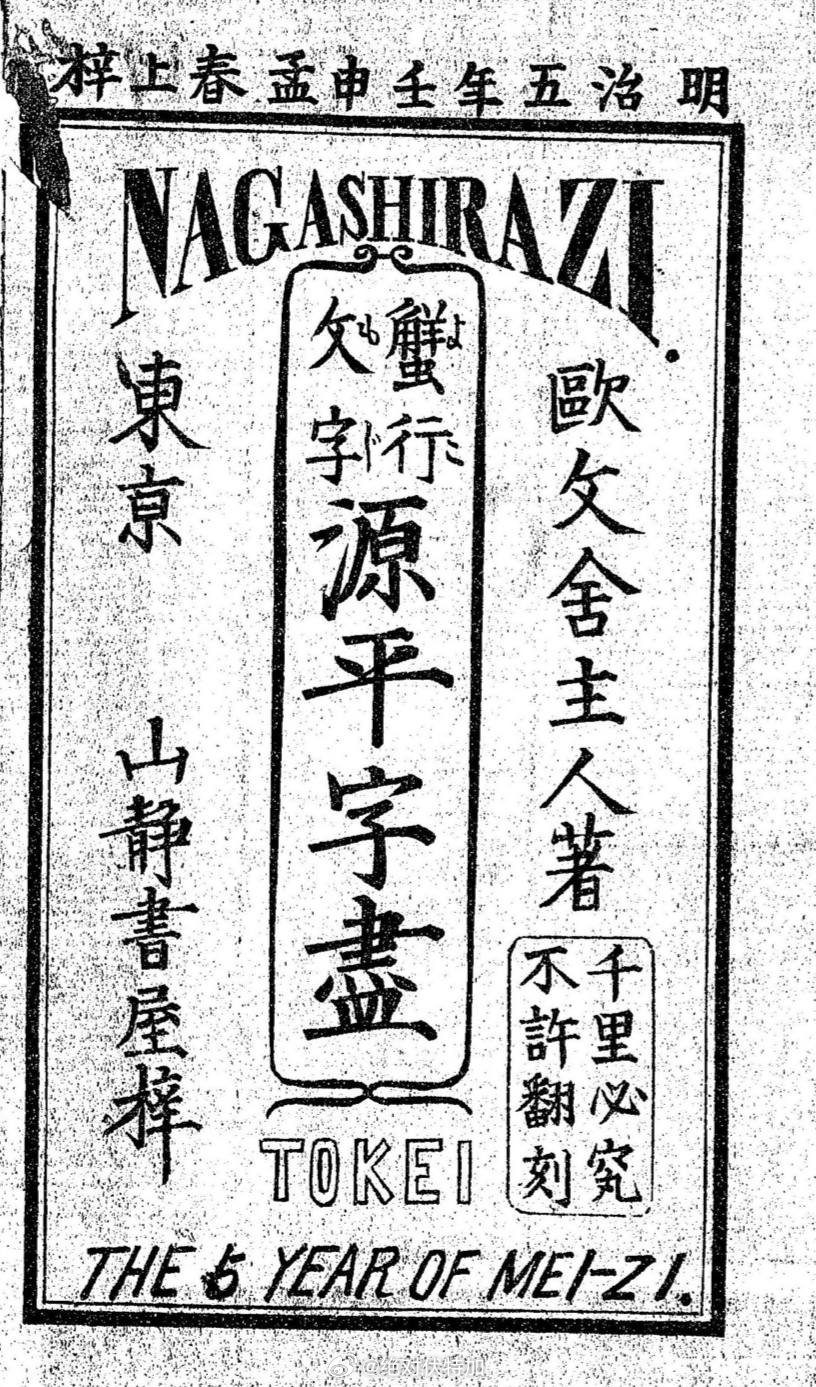 明治五年壬申孟春上梓
NAGASHIRAZI.
歐文舍主人著
千里必究
不許翻刻
蟹行
よこ
文字
もじ
源平字盡
東京 山静書屋梓
TOKEI
THE 5 YEAR OF MEI-ZI.